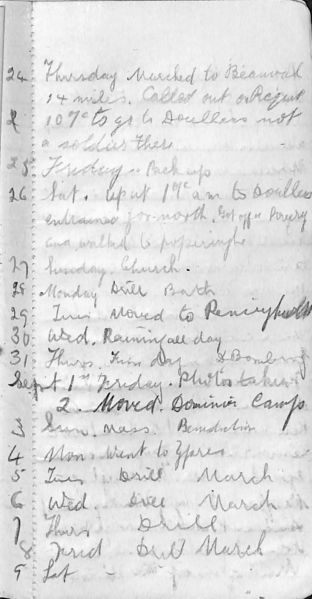 24 Thursday Marched to Beauval
14 miles. Called out on Regent
107c to go to Doullens not
a soldier there
25 Friday - Pack up
26 Sat. up at 1 am to Doullens
entrained for north. Got off
and walked to poperinghe
27 Sunday. Church.
28 Monday Drill Bath
29 Tues Moved to
30 Wed. Raining all day
31 Thurs. day & Bombing
Sept 1st Friday. Photos taken
2. Moved. Dominion Camp
3 Sun. Mass. Benediction
4 Mon. Went to Ypres
5 Tues Drill March
6 Wed. Drill March
7 Thurs Drill
8 Frid Drill March
9 Sat -